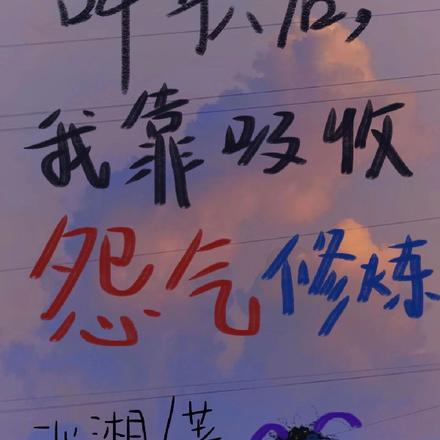 后，
我靠吸收
怨气修炼
湘/著